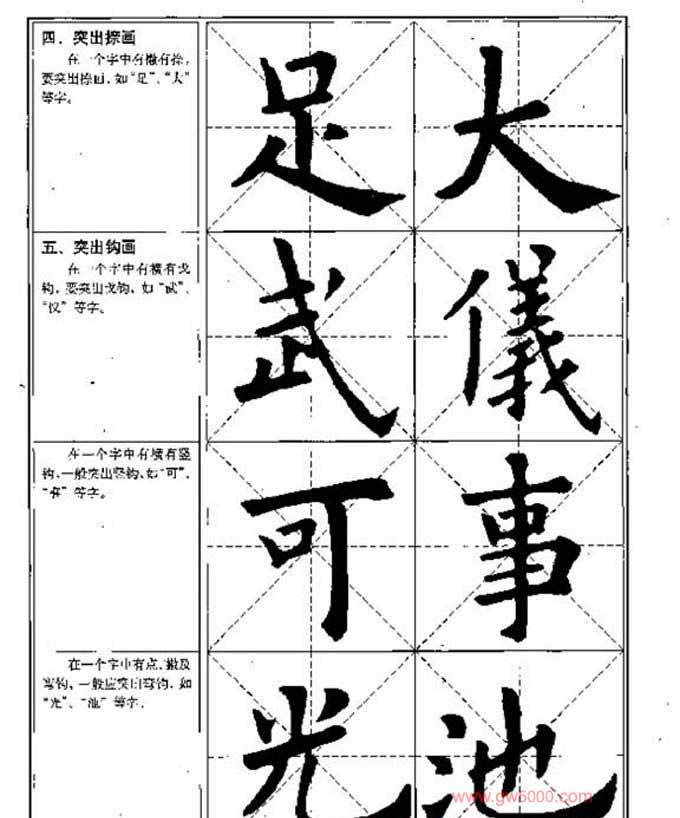 四、突出捺画
在一个字中有撇有捺，
要突出捺画，如“足”、“大”
等字。
足 大
五、突出钩画
在一个字中有横有戈
钩，要突出戈钩，如“武”、
“仪”等字。
武 儀
在一个字中有横有竖
钩，一般突出竖钩，如“可”、
等字。
可 事
在一个字中有点、撇及
弯钩，一般应突出弯钩，如
“光”、“池”等字。
光 池
www.gw5000.com